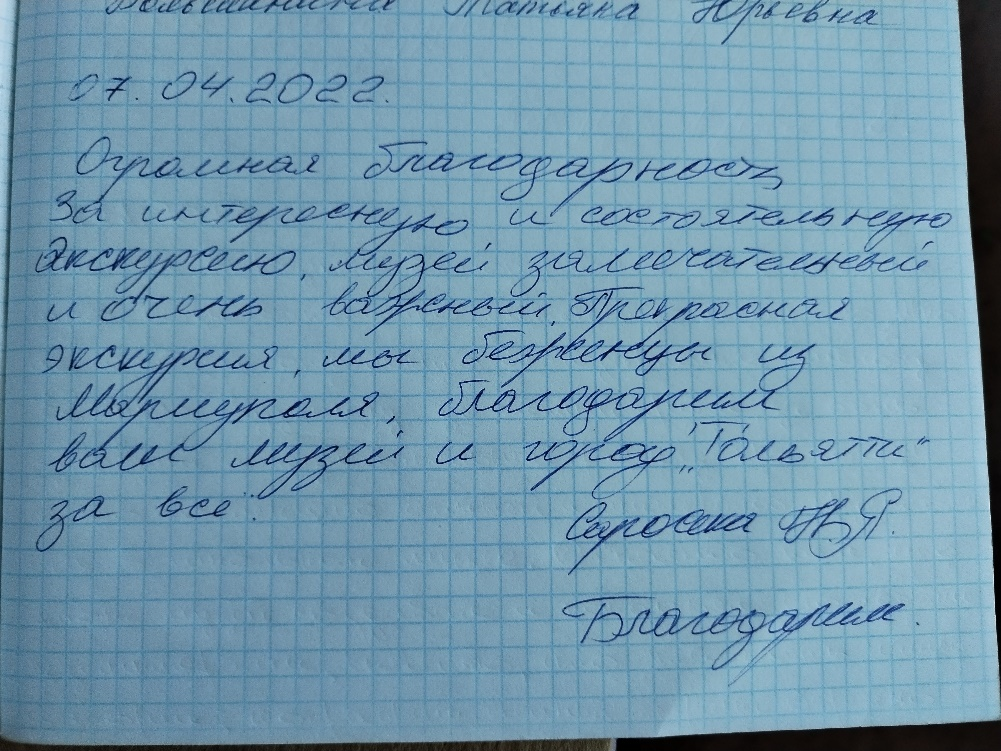 Татьяна Юрьевна
07.04.2022.
Огромная благодарность
за интересную и состоятельную
экскурсию, музей замечательный
и очень важный. Прекрасная
экскурсия, мы беженцы из
Мариуполя, благодарим
ваш музей и город „Тольятти“
за всё.
Благодарим.